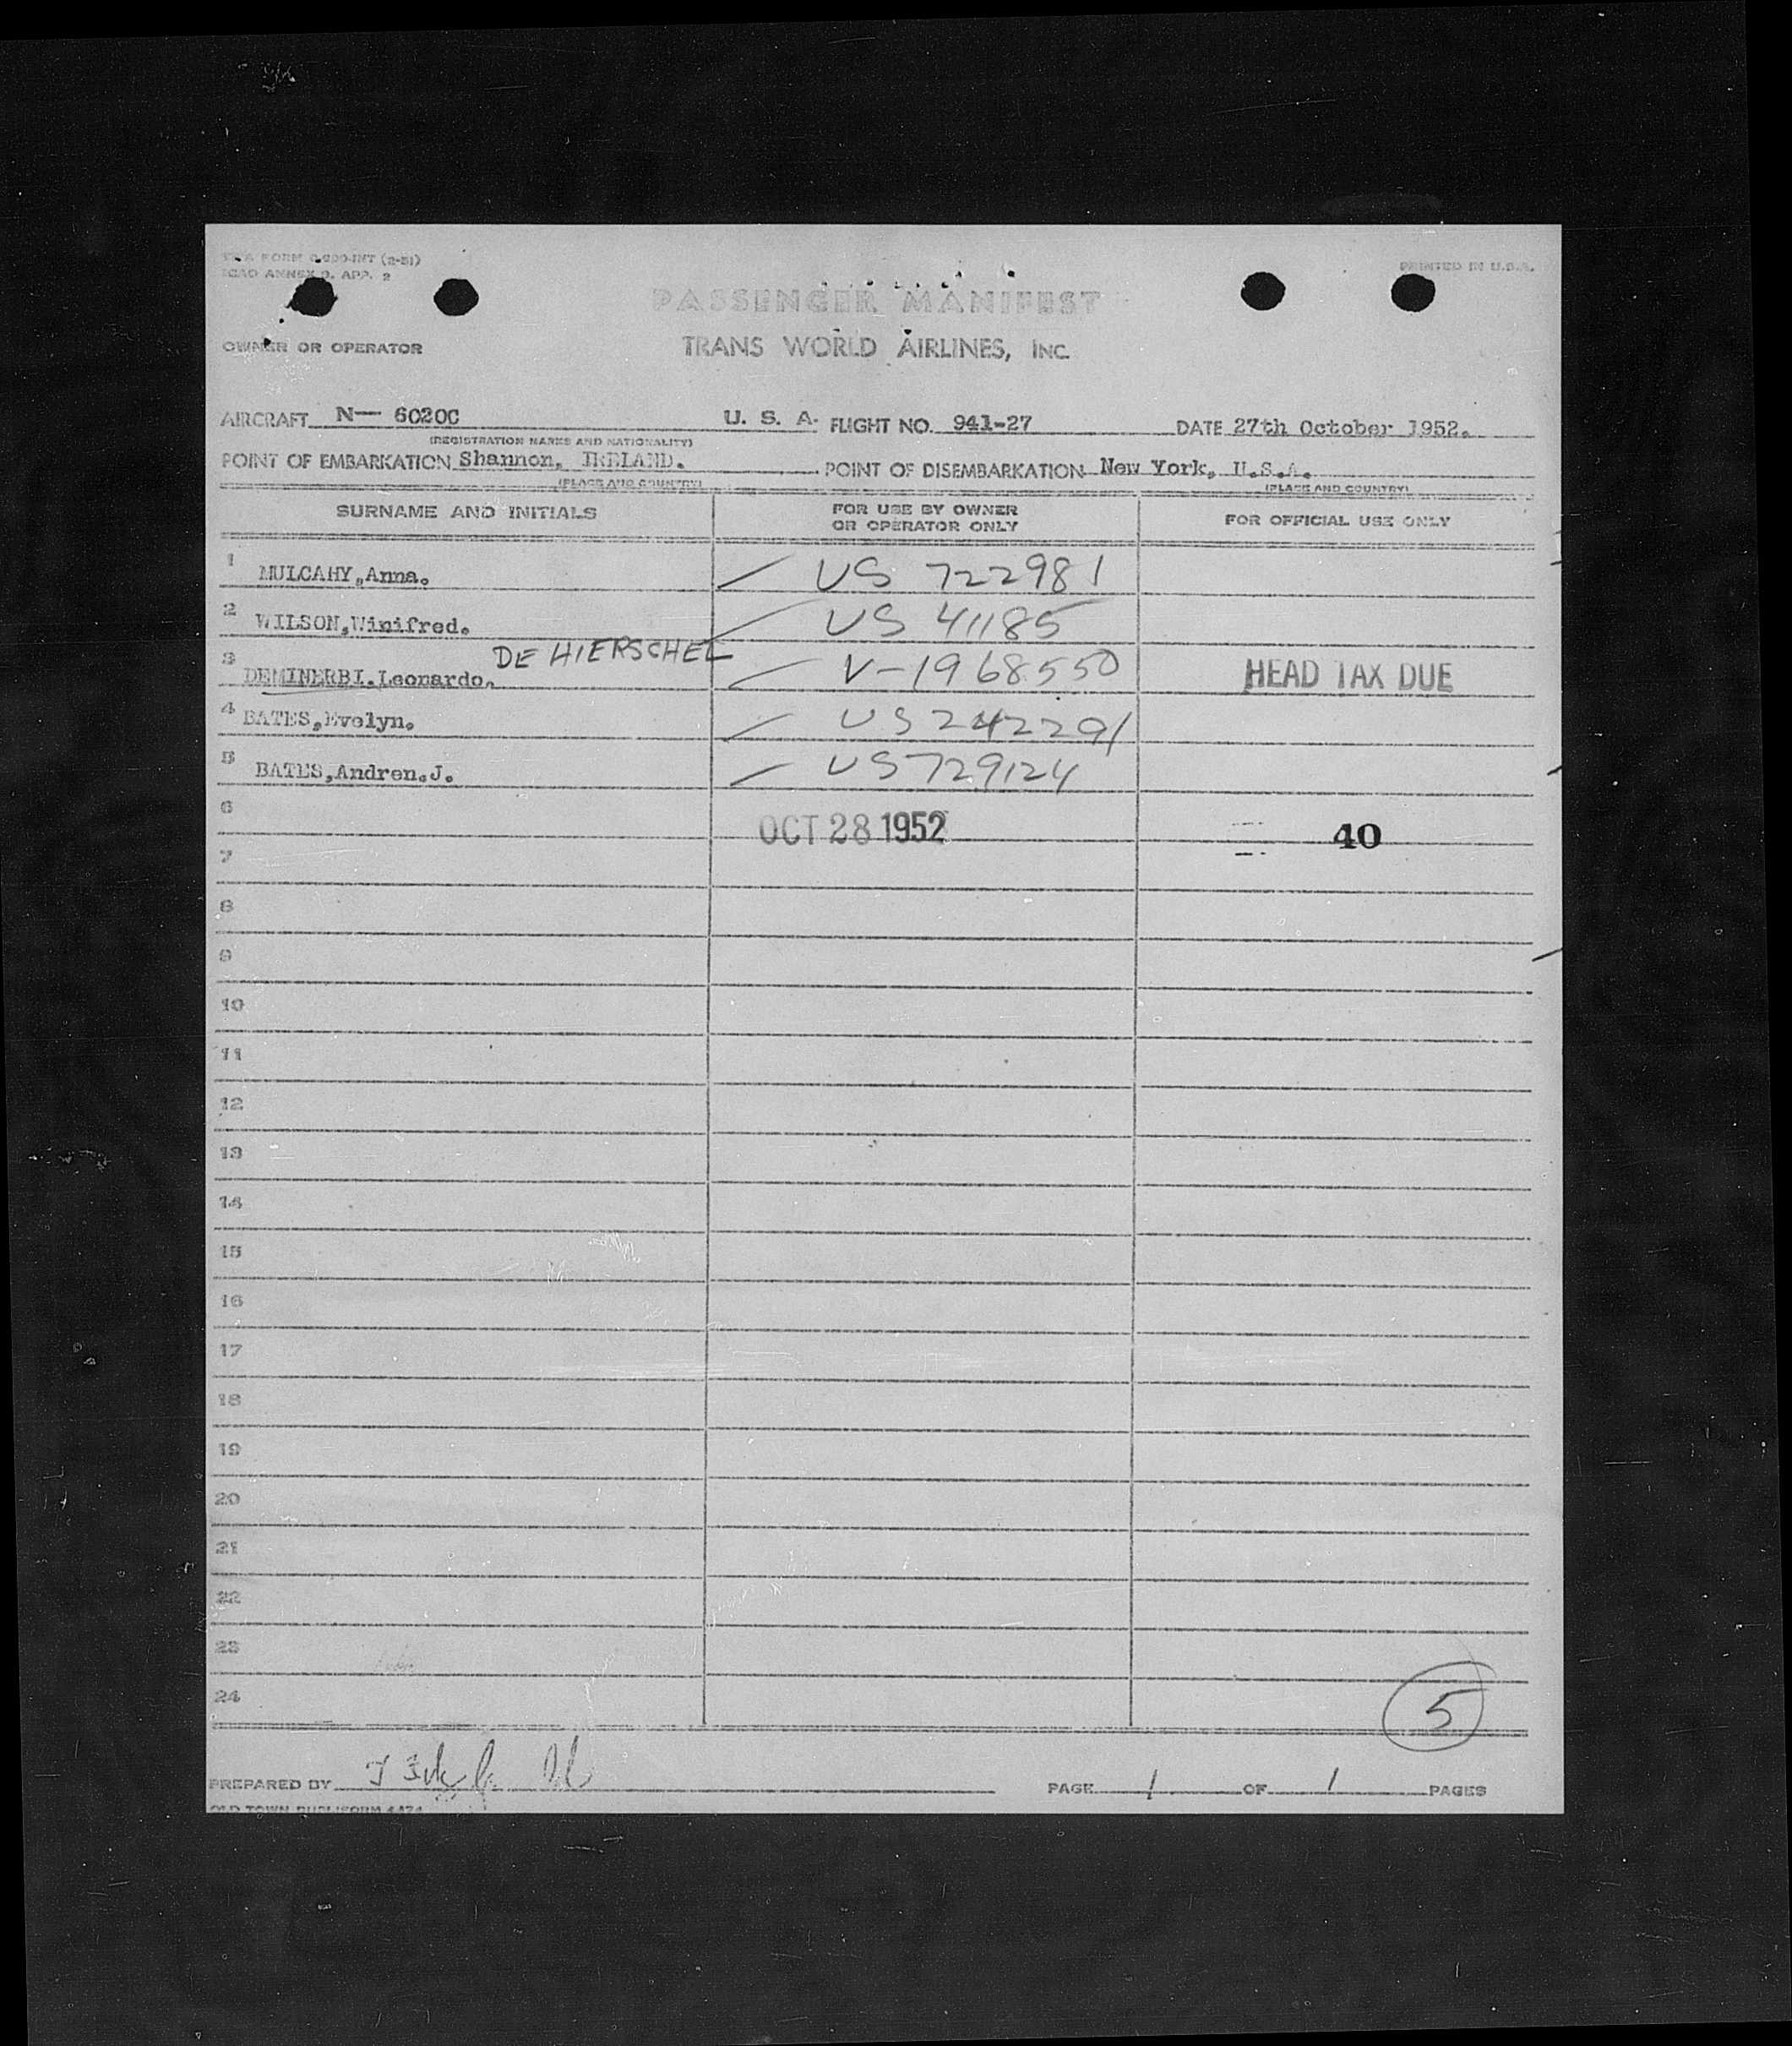 TWA FORM (2-51)
ICAO ANNEX 9, APP. 2
PRINTED IN U.S.A.
PASSENGER MANIFEST
OWNER OR OPERATOR TRANS WORLD AIRLINES, INC.
AIRCRAFT N— 6020C U. S. A. FLIGHT NO. 941-27 DATE 27th October 1952.
(REGISTRATION MARKS AND NATIONALITY)
POINT OF EMBARKATION Shannon, IRELAND. POINT OF DISEMBARKATION New York, U.S.A.
(PLACE AND COUNTRY) (PLACE AND COUNTRY)
SURNAME AND INITIALS FOR USE BY OWNER OR OPERATOR ONLY FOR OFFICIAL USE ONLY
1 MULCAHY,Anna. US 722981
2 WILSON,Winifred. US 41185
DE HIERSCHEL
3 DEMINERBI.Leonardo. V-1968550 HEAD TAX DUE
4 BATES,Evelyn. US242291
5 BATES,Andren.J. US729124
6 OCT 28 1952 40
7
8
9
10
11
12
13
14
15
16
17
18
19
20
21
22
23
24 5
PREPARED BY PAGE 1 OF 1 PAGES
OLD TOWN DUPLIFORM 4474